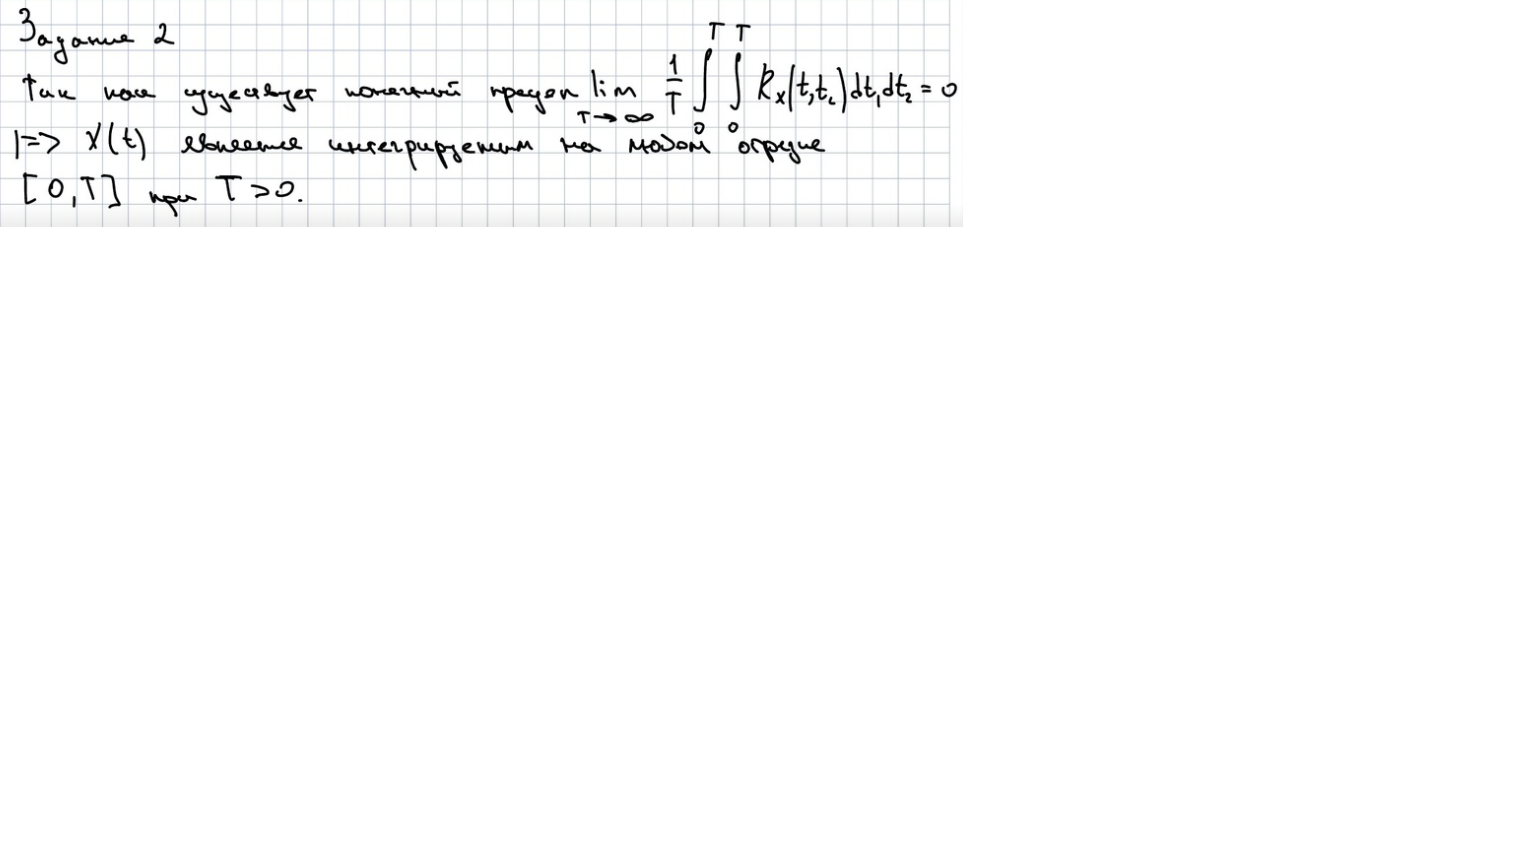 Задание 2
Так как существует конечный предел lim T→∞ 1/T ∫₀ᵀ ∫₀ᵀ Kₓ(t₁t₂)dt₁dt₂ = 0
|=> X(t) является интегрируемым на любом отрезке
[0,T] при T>0.